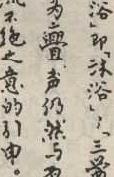 浴”即“沐浴”。三
为亹，声仍然与
不绝之意的引申。